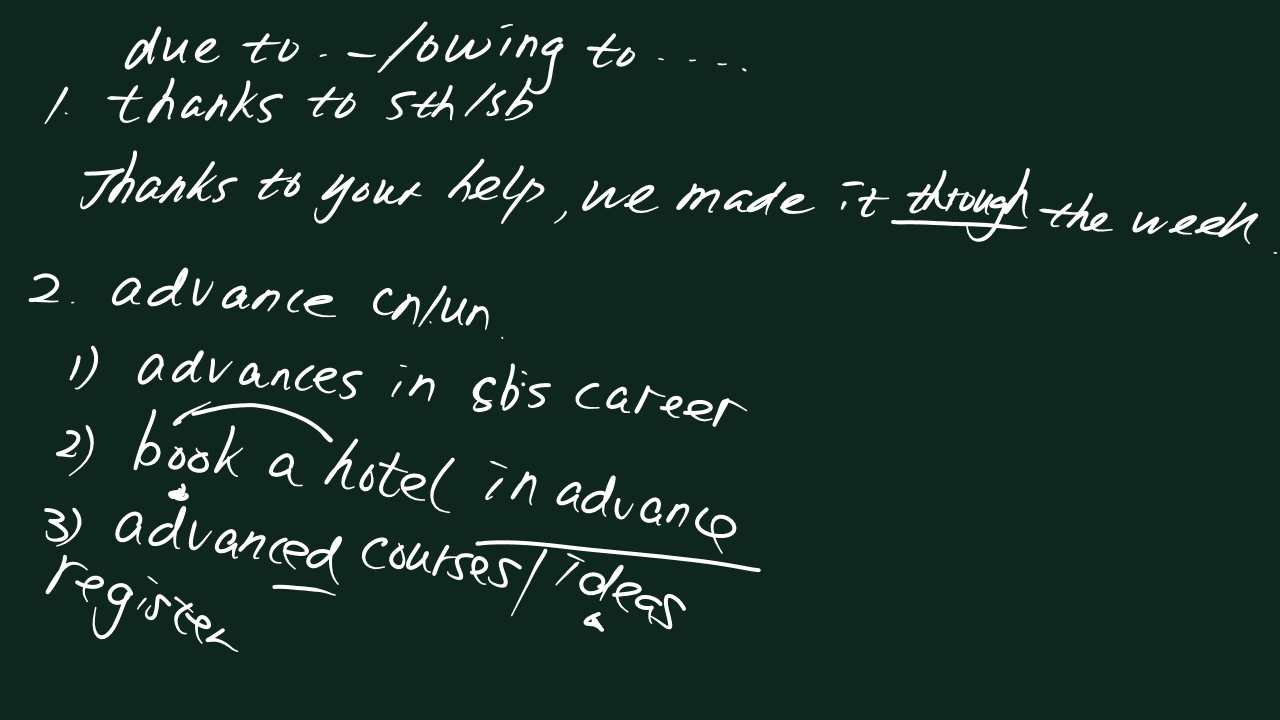 due to . – / owing to ....
1. thanks to sth/sb
Thanks to your help, we made it through the week.
2. advance cn/un.
1) advances in sb's career
2) book a hotel in advance
3) advanced courses / ideas
register